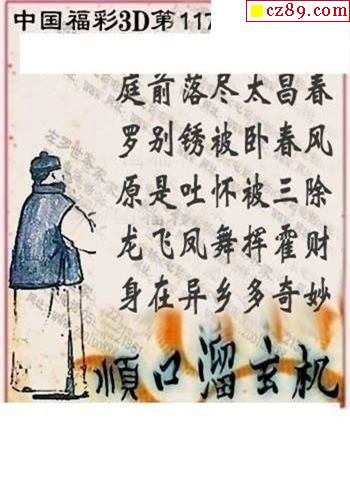 cz89.com
中国福彩3D第117
庭前落尽太昌春
罗别锈被卧春风
原是吐怀被三除
龙飞凤舞挥霍财
身在异乡多奇妙
顺口溜玄机